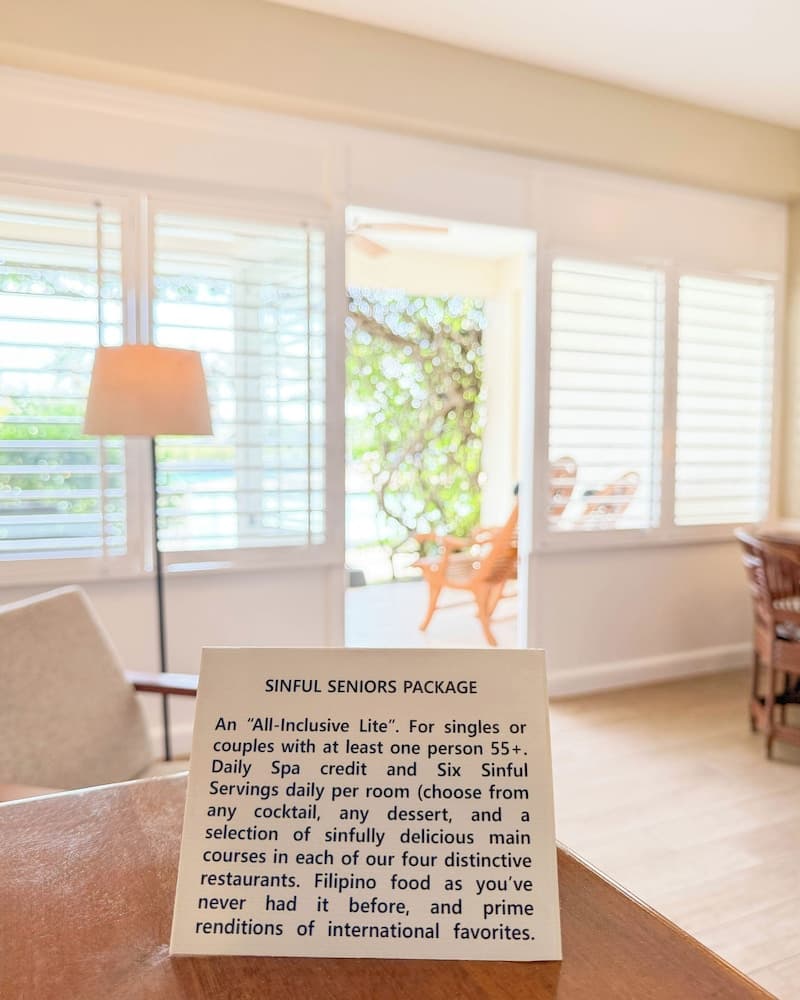 SINFUL SENIORS PACKAGE
An “All-Inclusive Lite”. For singles or
couples with at least one person 55+.
Daily Spa credit and Six Sinful
Servings daily per room (choose from
any cocktail, any dessert, and a
selection of sinfully delicious main
courses in each of our four distinctive
restaurants. Filipino food as you’ve
never had it before, and prime
renditions of international favorites.